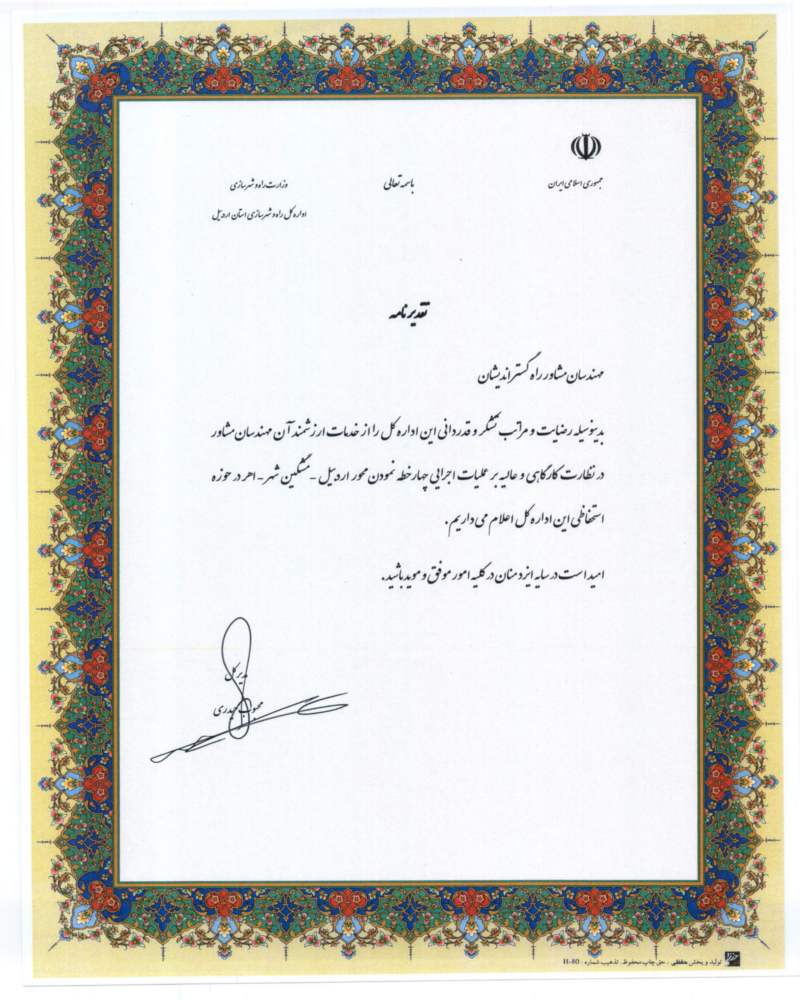 جمهوری اسلامی ایران
باسمه تعالی
وزارت راه و شهرسازی
اداره کل راه و شهرسازی استان اردبیل
تقدیرنامه
مهندسان مشاور راه گستر اندیشان
بدینوسیله رضایت و مراتب تشکر و قدردانی این اداره کل را از خدمات ارزشمند آن مهندسان مشاور
در نظارت کارگاهی و عالیه بر عملیات اجرایی چهارخطه نمودن محور اردبیل - مشگین شهر - اهر در حوزه
استحفاظی این اداره کل اعلام می داریم.
امید است در سایه ایزد منان در کلیه امور موفق و موید باشید.
مدیر کل
حیدری
تولید و پخش حفظی ، حق چاپ محفوظ. تذهیب شماره : H-80